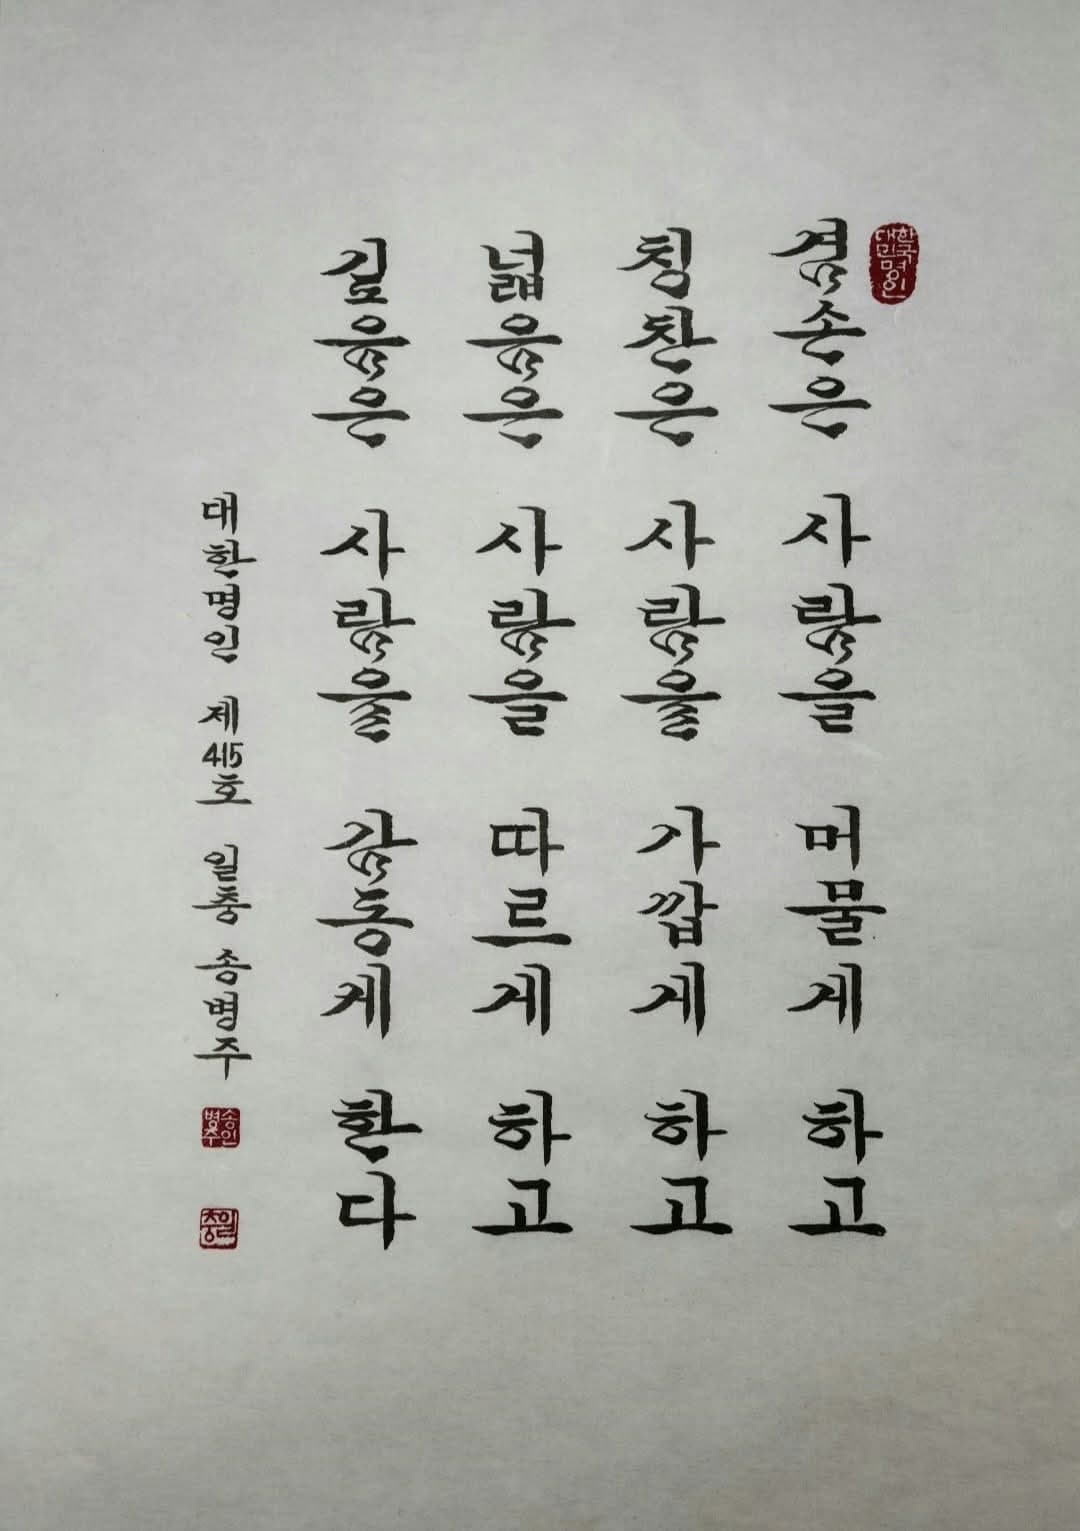 대한민국명인
겸손은 사람을 머물게 하고
칭찬은 사람을 가깝게 하고
넓음은 사람을 따르게 하고
깊음은 사람을 감동케 한다
대한명인 제415호 일충 송병주
송병주인
일충